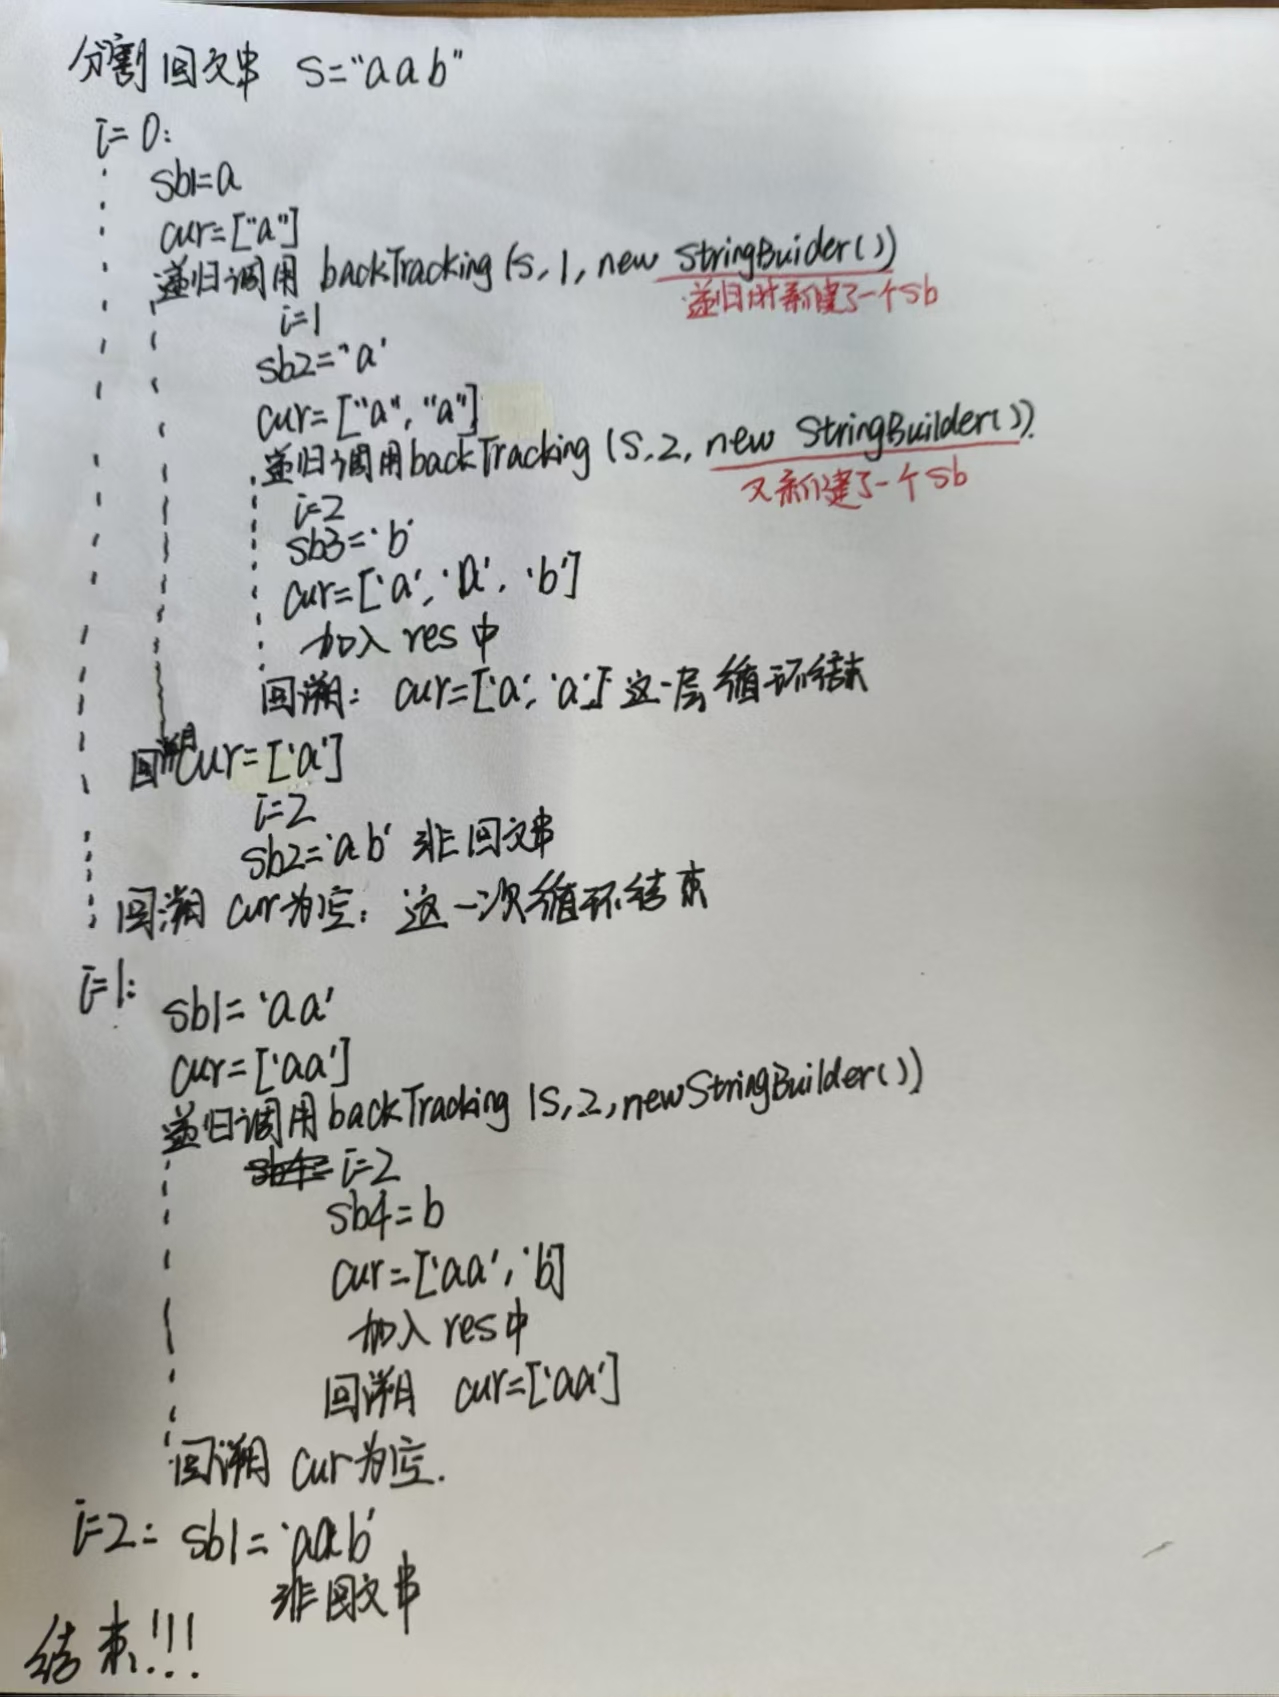 分割回文串 S="aab"
i=0:
sb1=a
cur=["a"]
递归调用 backTracking(s,1,new StringBuider())
递归时新建了一个sb
i=1
sb2='a'
cur=["a","a"]
递归调用backTracking(S,2,new StringBuilder()).
又新建了一个sb
i=2
sb3='b'
cur=['a','a','b']
加入res中
回溯: cur=['a','a'] 这一层循环结束
回溯cur=['a']
i=2
sb2='ab' 非回文串
回溯 cur为空, 这一次循环结束
i=1:
sb1='aa'
cur=['aa']
递归调用backTracking(S,2,newStringBuilder())
i=2
sb4=b
cur=['aa','b]
加入res中
回溯 cur=['aa']
回溯 cur为空.
i=2: sb1='aab'
非回文串
结束!!!